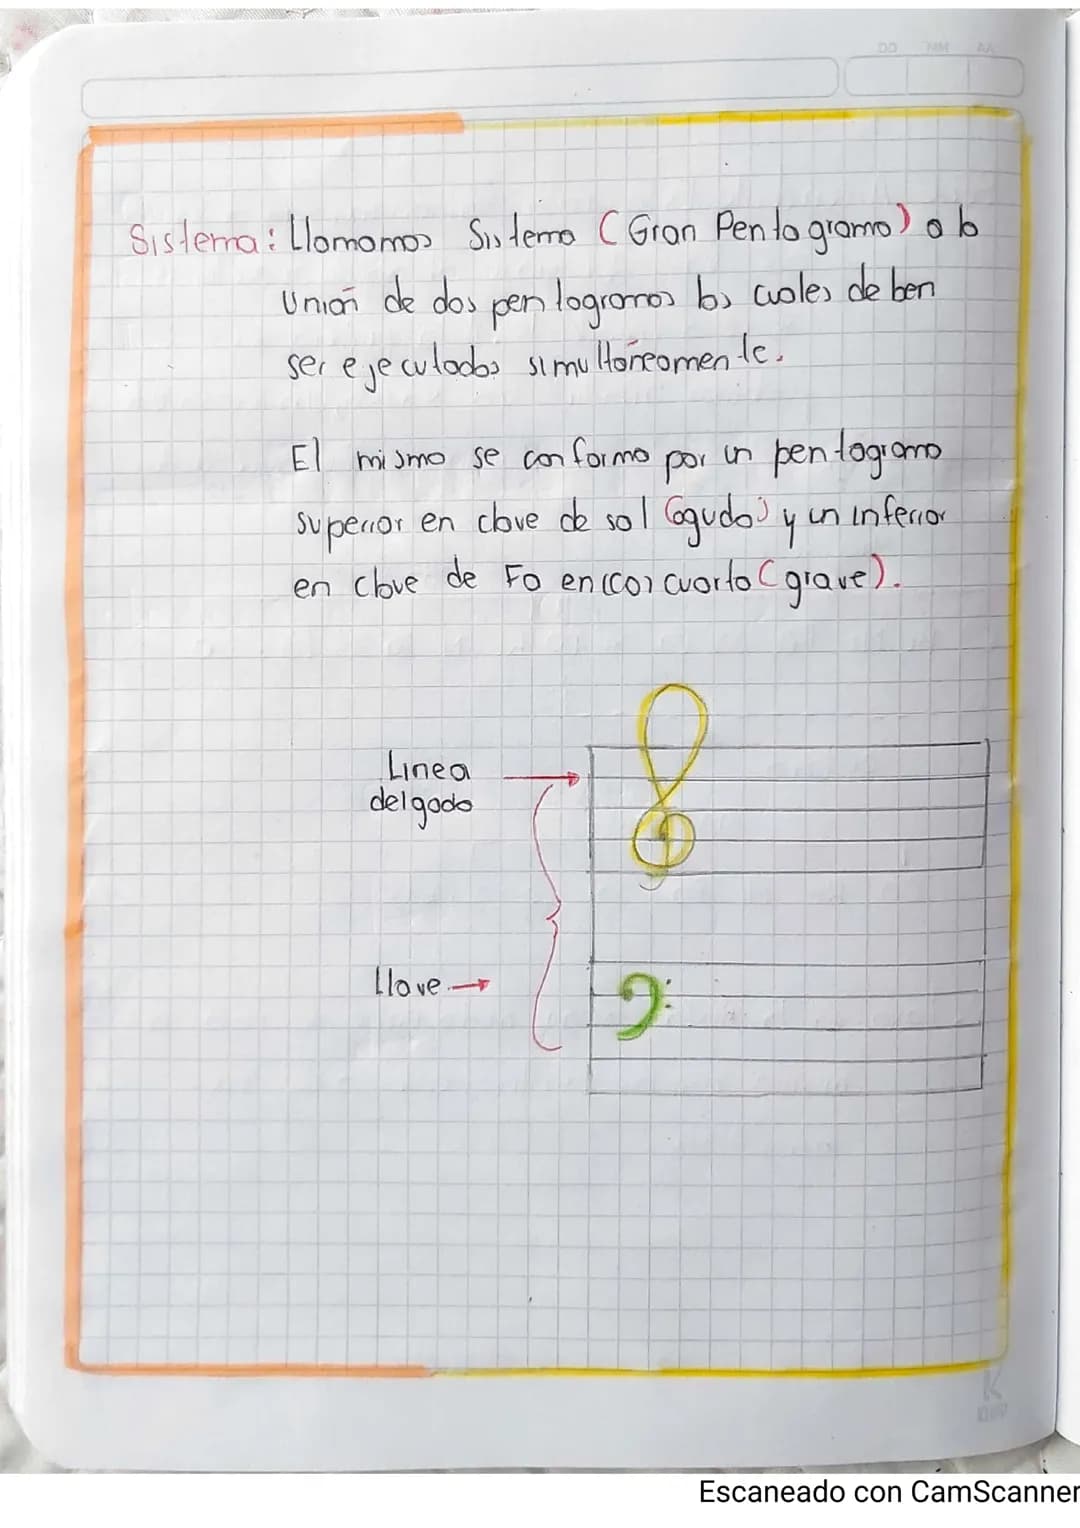 DD MM AA
Sistema: Llamamos Sistema (Gran Pentagrama) a la
Unión de dos pentagramas los cuales deben
ser ejecutados simultáneamente.
El mismo se conforma por un pentagrama
superior en clave de sol (agudo) y un inferior
en clave de Fa en cuarta (grave).
Linea
delgada
Llave
Escaneado con CamScanner